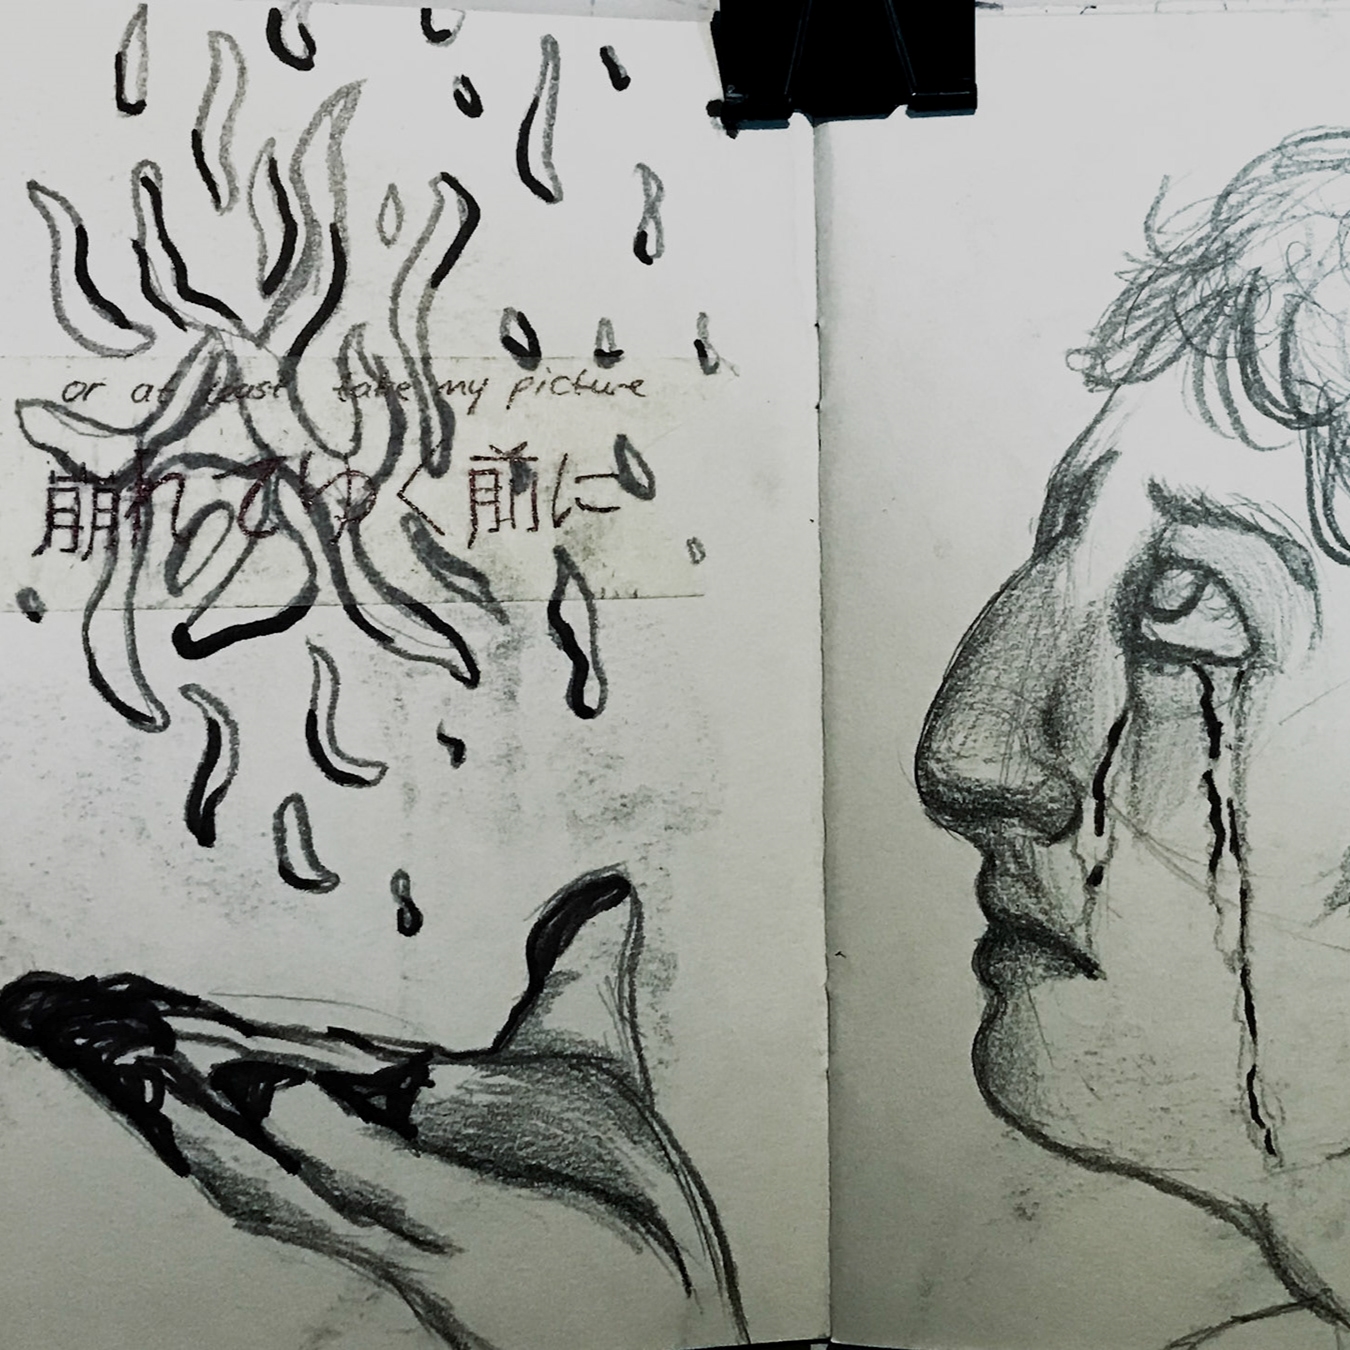 or at least take my picture
崩れてゆく前に